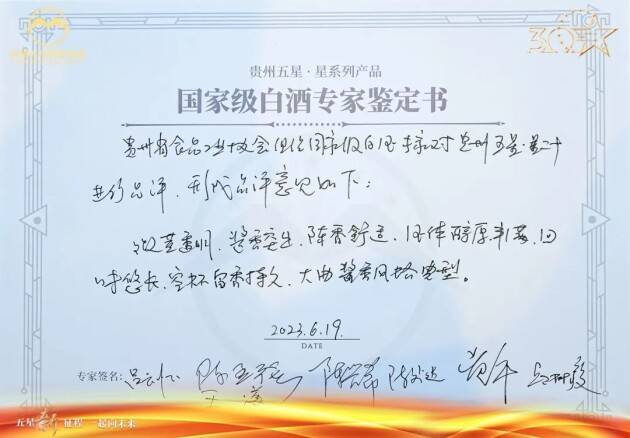 贵州五星·星系列产品
国家级白酒专家鉴定书
贵州省食品工业协会组织国家级白酒专家对贵州五星·星二十
进行品评，形成品评意见如下：
微黄透明、酱香突出、陈香舒适、酒体醇厚丰满、回
味悠长、空杯留香持久、大曲酱香风格典型。
2023.6.19.
DATE
专家签名：吕云怀
五星新征程 一起向未来